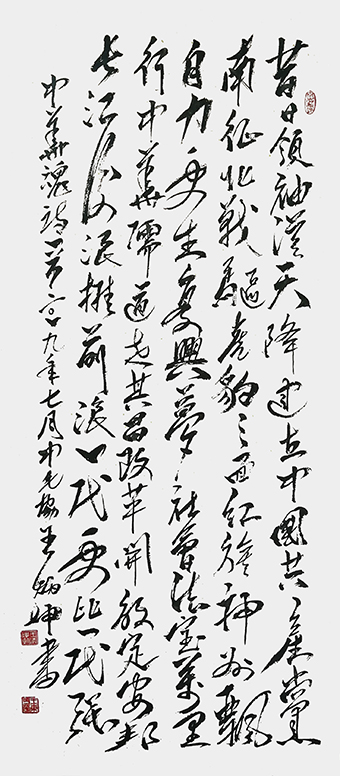 昔日领袖從天降建立中國共產黨
南征北戰驅虎豹面红旗神州飄
自力更生复興夢社會法宝萬里
行中華儒道共昌改革開放定安邦
长江后浪推前浪一代更比一代强
中華魂诗一首二〇一九年七月中老協王坤書